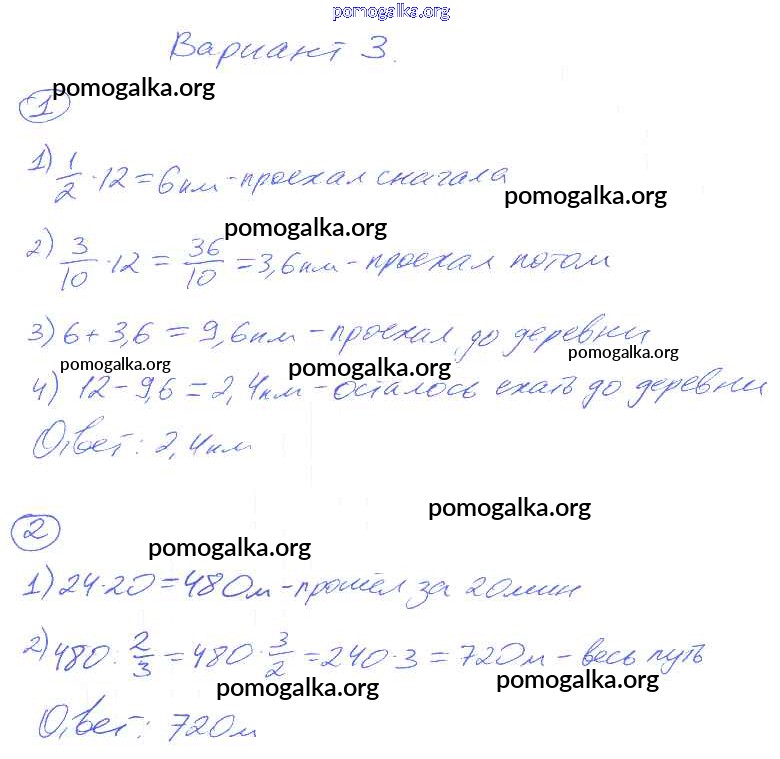 pomogalka.org
Вариант 3.
pomogalka.org
1
1) 1/2 · 12 = 6 км - проехал сначала
pomogalka.org
pomogalka.org
2) 3/10 · 12 = 36/10 = 3,6 км - проехал потом
3) 6 + 3,6 = 9,6 км - проехал до деревни
pomogalka.org pomogalka.org pomogalka.org
4) 12 - 9,6 = 2,4 км - осталось ехать до деревни
Ответ: 2,4 км
pomogalka.org
2
pomogalka.org
1) 24 · 20 = 480 м - прошёл за 20 мин
2) 480 : 2/3 = 480 · 3/2 = 240 · 3 = 720 м - весь путь
pomogalka.org pomogalka.org
Ответ: 720 м